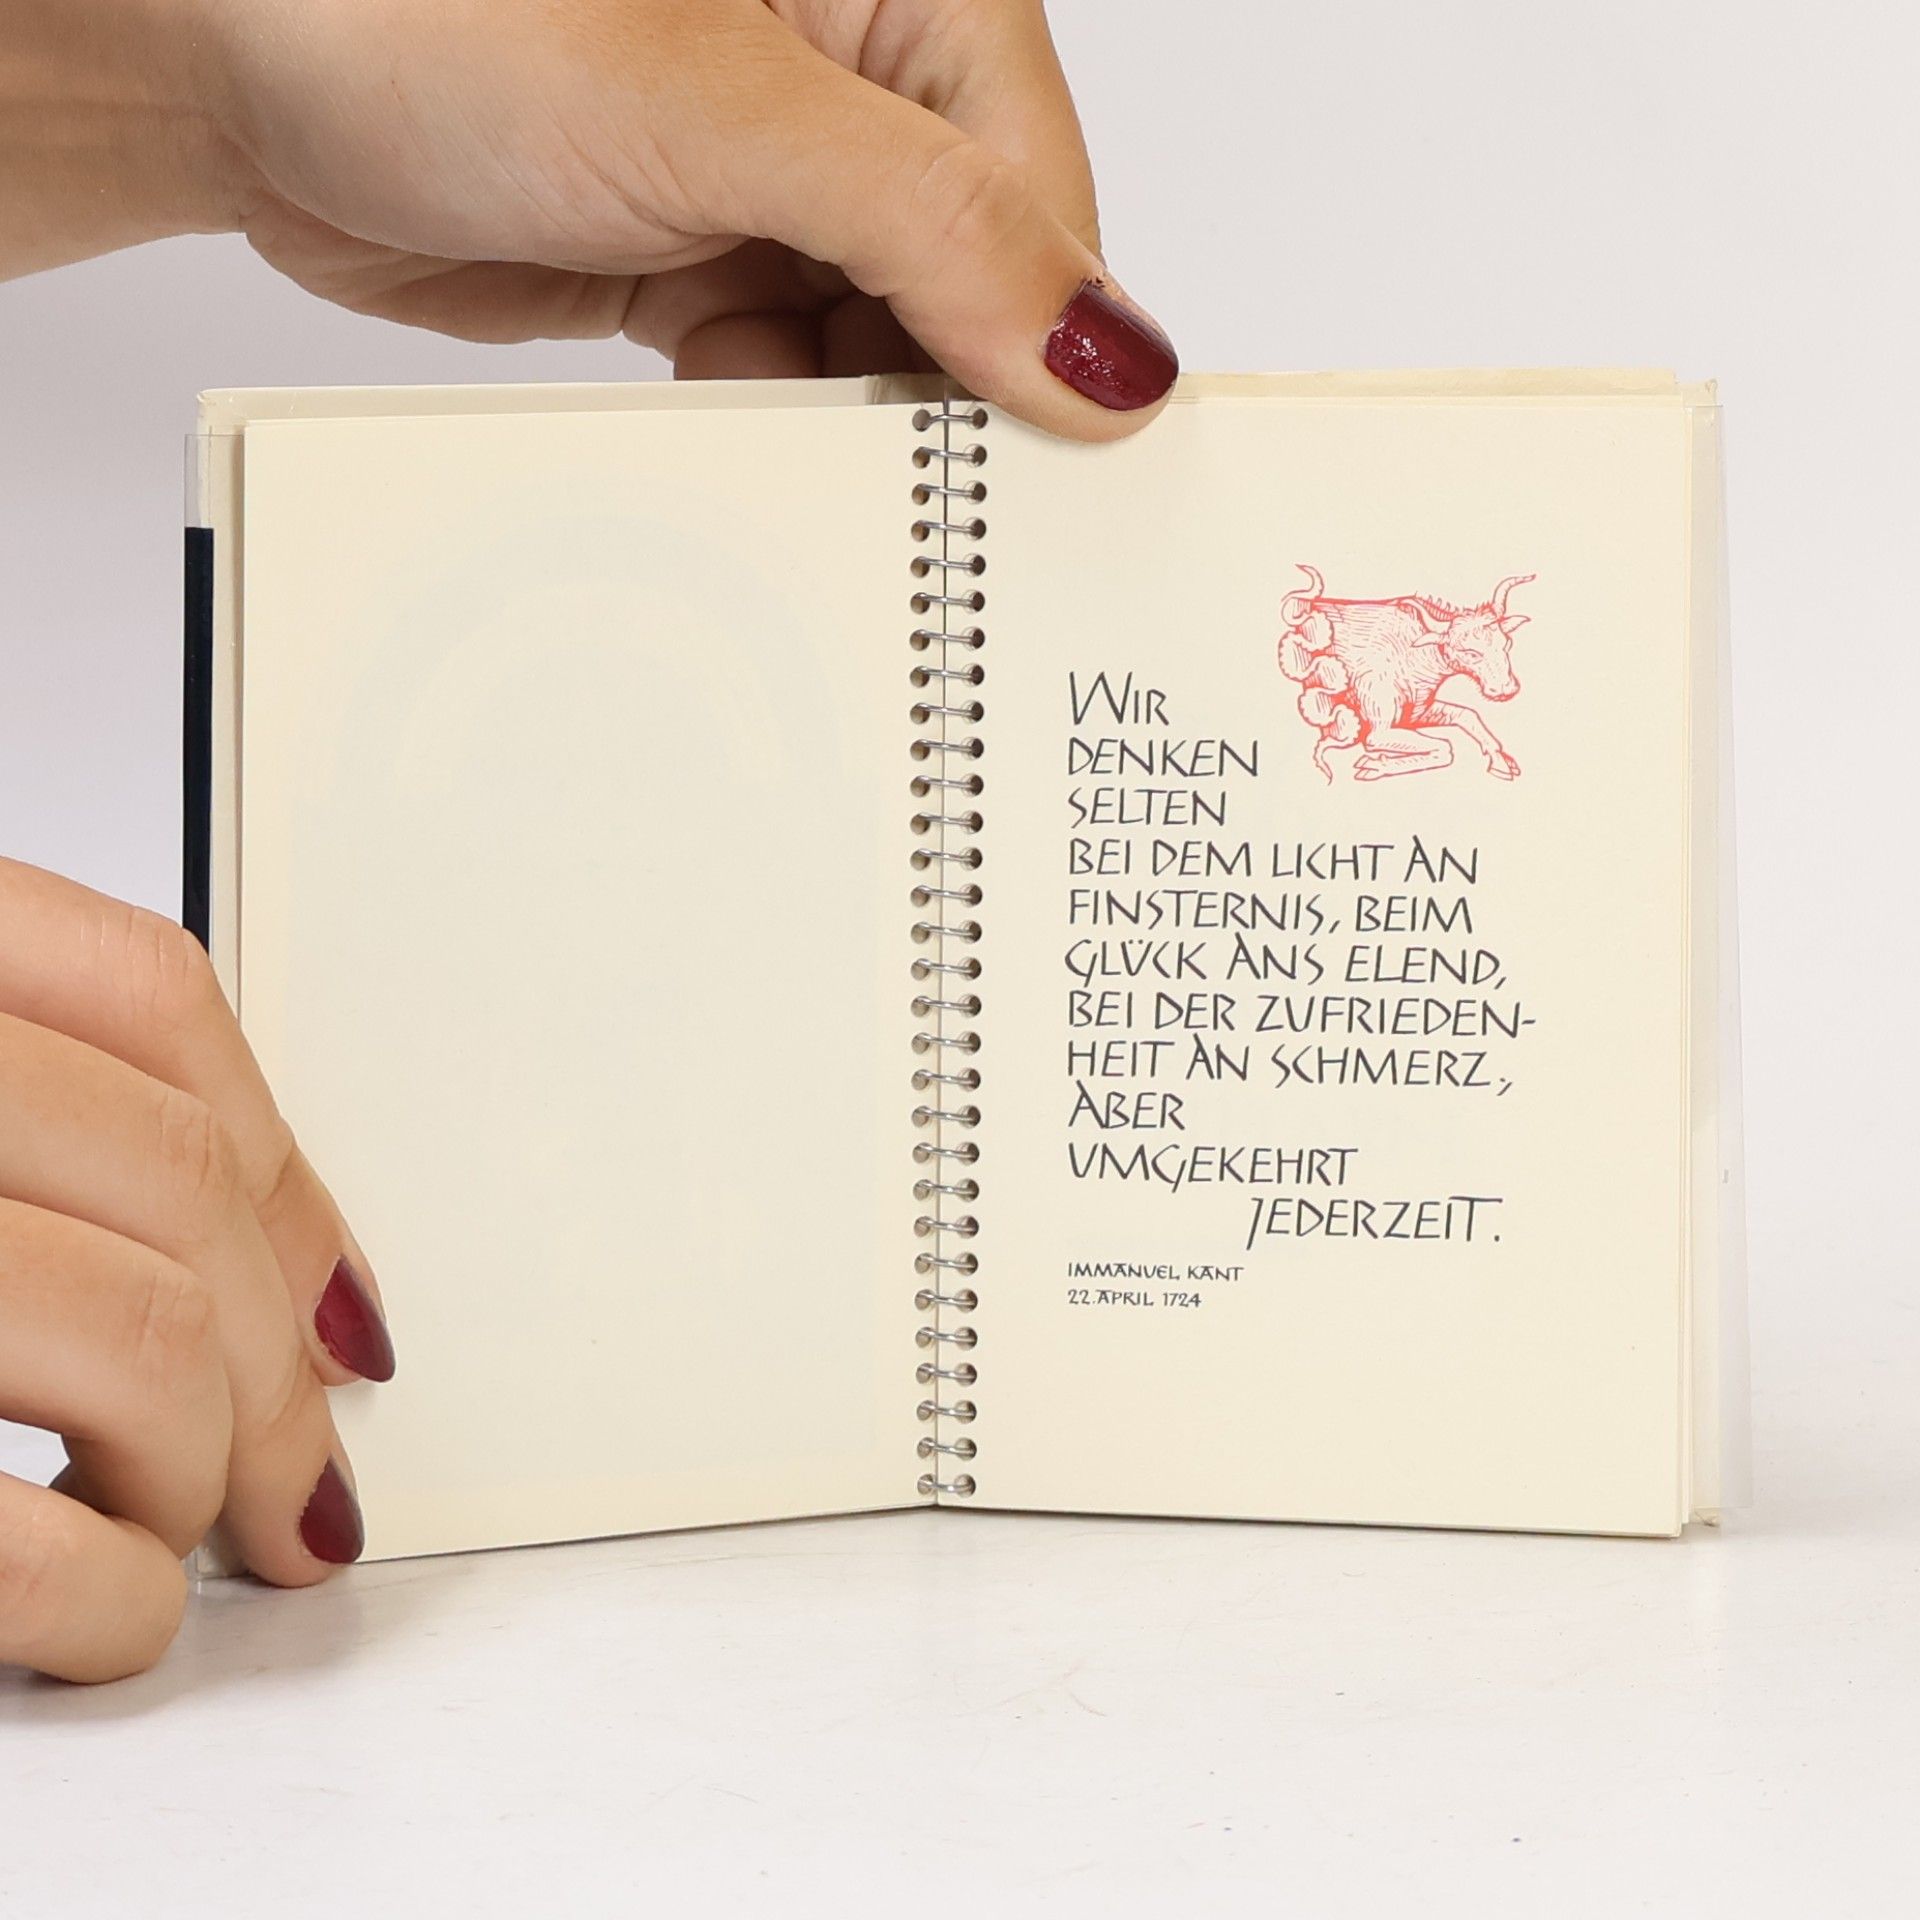 WIR
DENKEN
SELTEN
BEI DEM LICHT AN
FINSTERNIS, BEIM
GLÜCK ANS ELEND,
BEI DER ZUFRIEDEN-
HEIT AN SCHMERZ;
ABER
UMGEKEHRT
JEDERZEIT.
IMMANUEL KANT
22. APRIL 1724